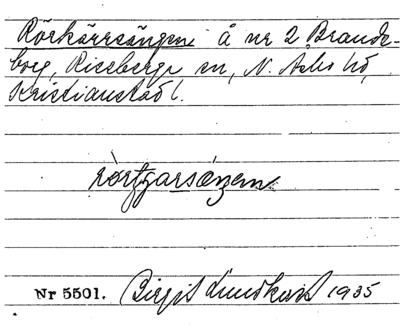 Rörkärrsängen å nr 2 Brands-
borg, Riseberga sn, N. Åsbo hd,
Kristianstad l.
rörtjarsängen
Nr 5501. Birgit Lundkvist 1935